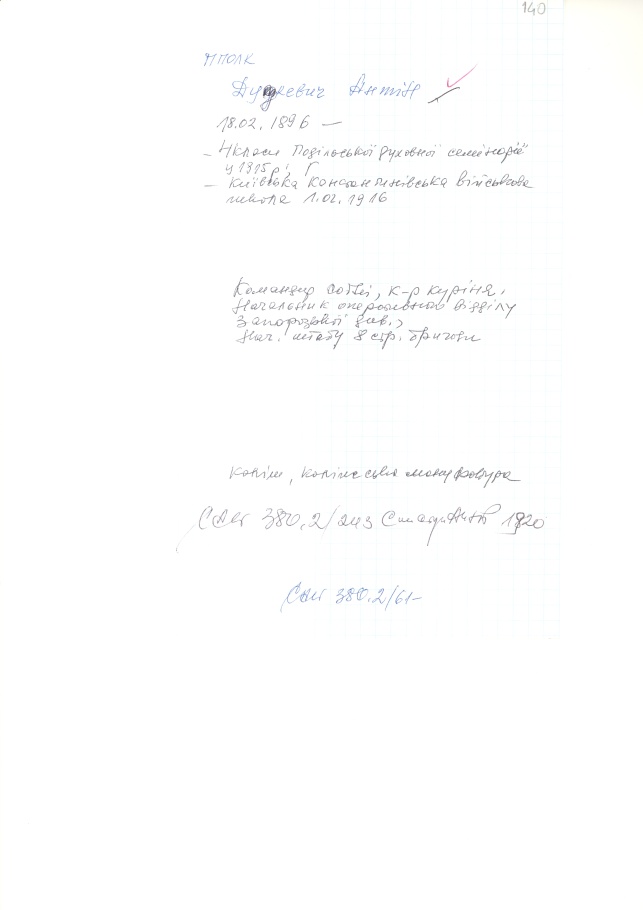 140
ППОЛК
Ду евич Антін
18.02.1896 —
– 4 класи Подільської духовної семінарії
у 1915 р.
– Київська Константинівська військова
школа 1.02.1916
Командир сотні, к-р куріня,
Начальник оперативного відділу
Запорозької див.,
Нач. штабу 8 стр. бригади
Каліш, мануфактура
CAW 380.2/243 1920
CAW 380.2/61